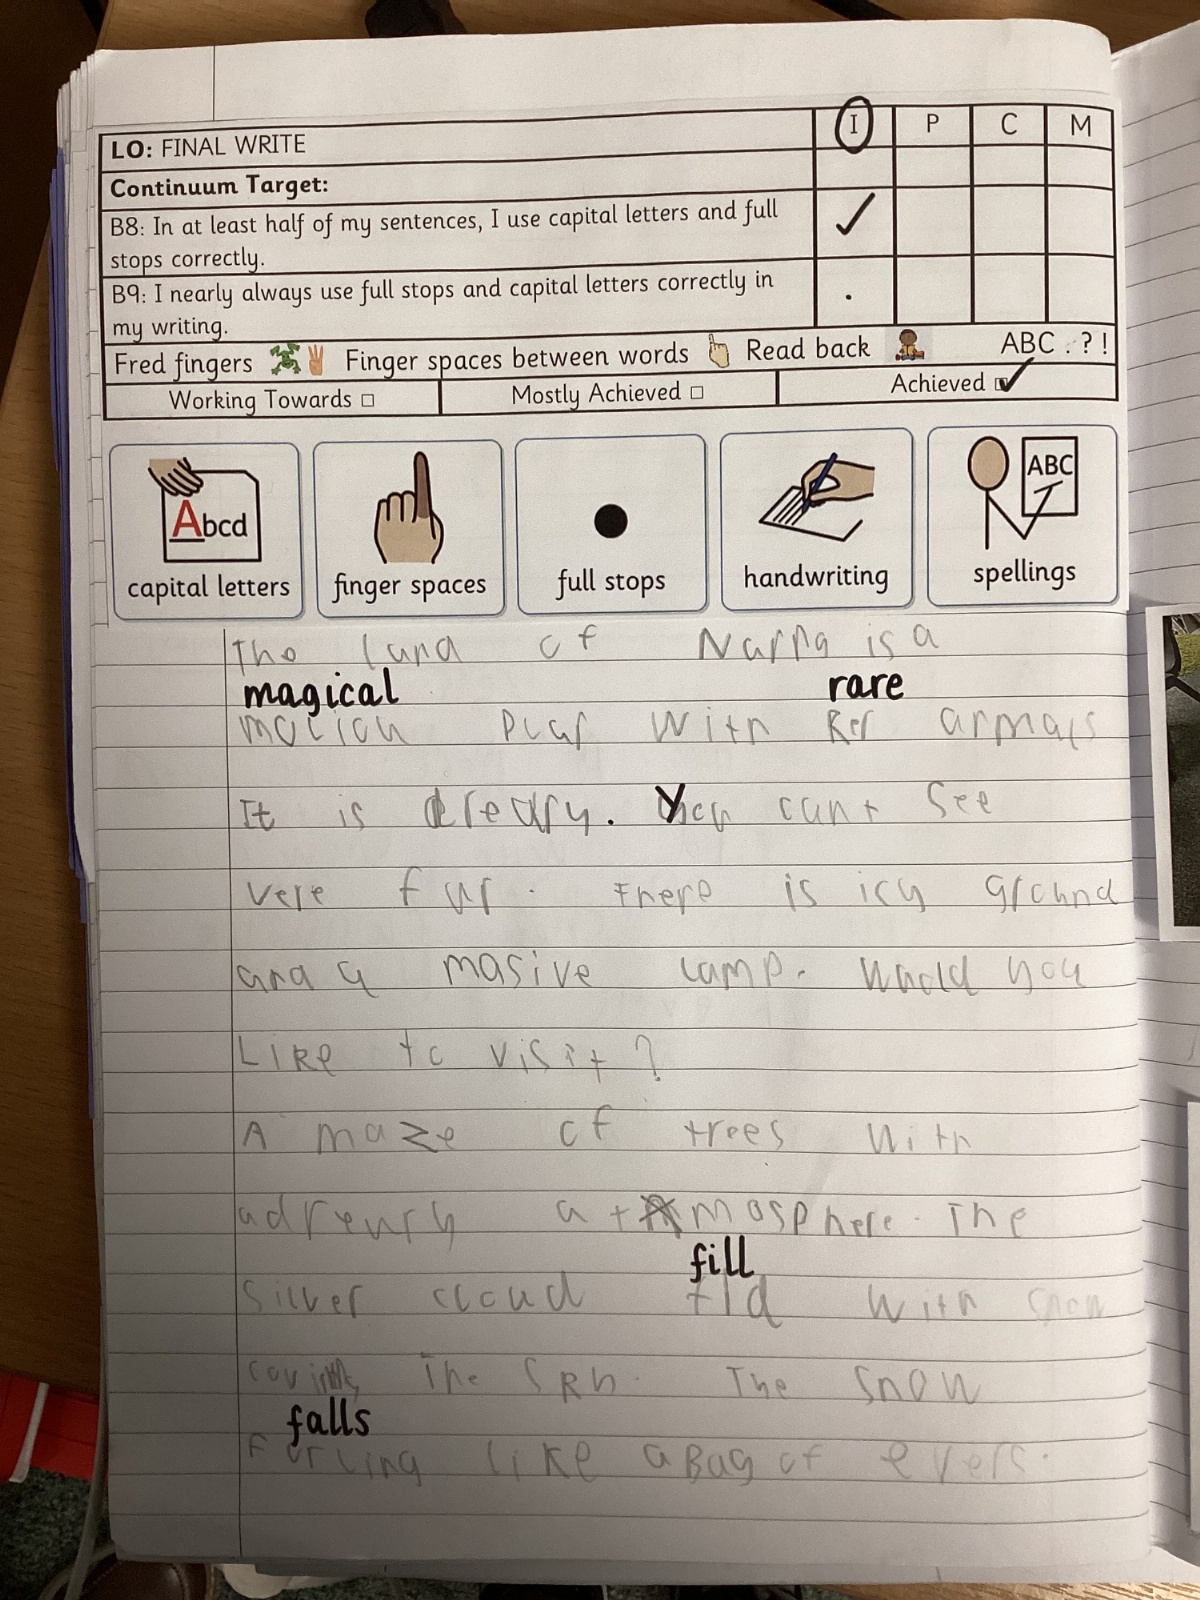 LO: FINAL WRITE
I P C M
Continuum Target:
B8: In at least half of my sentences, I use capital letters and full
stops correctly.
B9: I nearly always use full stops and capital letters correctly in
my writing.
Fred fingers Finger spaces between words Read back ABC . ? !
Working Towards Mostly Achieved Achieved
Abcd
ABC
capital letters finger spaces full stops handwriting spellings
The land of is a
magical rare
with
It is dreary. You cant See
Vere far. There is icy ground
and a masive lamp. Whold you
Like to visit?
A maze of trees with
at mosphere. The
fill
Silver cloud with snow
The . The snow
falls
like a Bag of